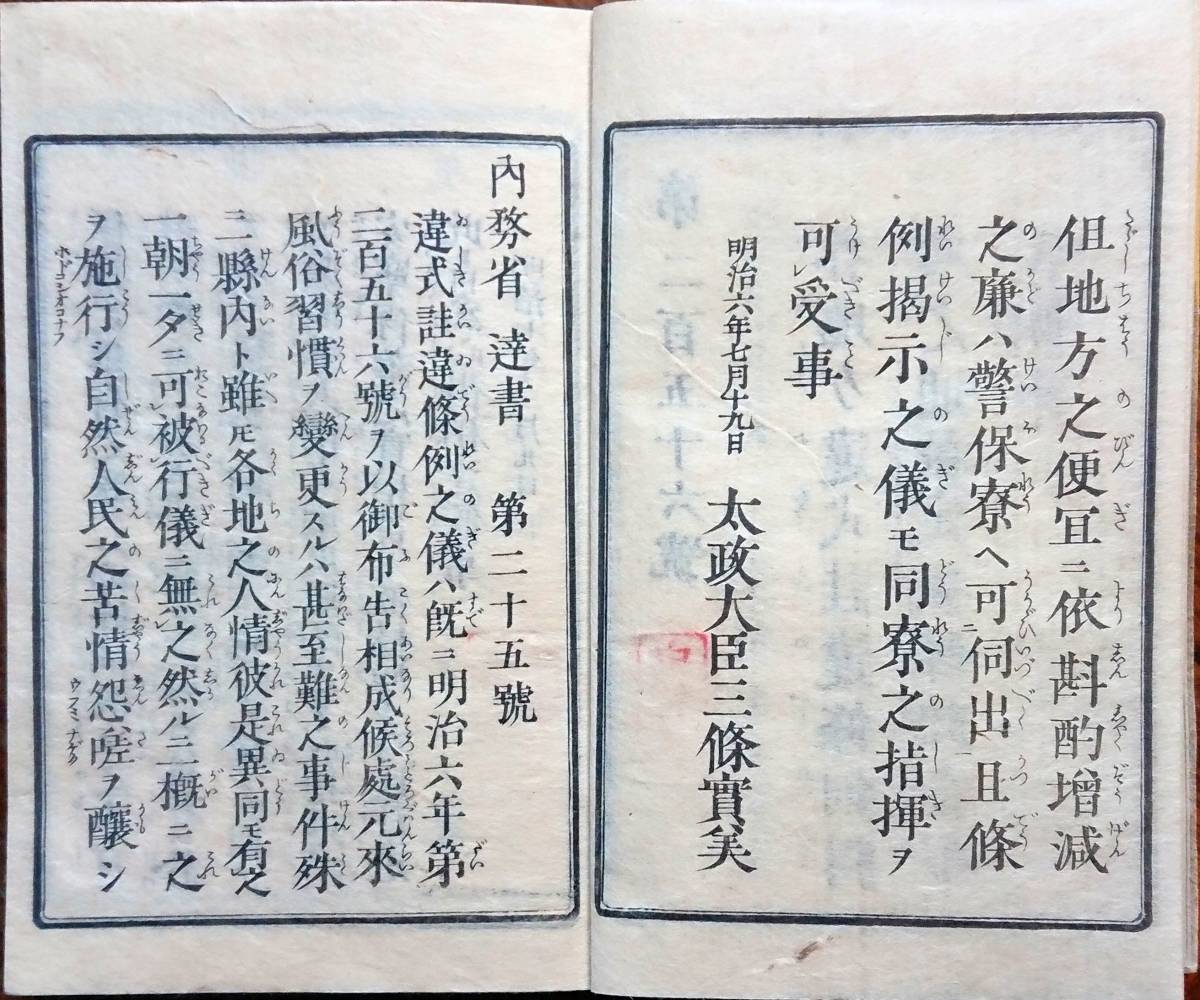 但地方之便冝ニ依斟酌增減
之廉ハ警保寮ヘ可伺出且條
例揭示之儀モ同寮之指揮ヲ
可受事
明治六年七月十九日　太政大臣三條實美
內務省達書　第二十五號
違式詿違條例之儀ハ旣ニ明治六年第
二百五十六號ヲ以御布告相成候處元來
風俗習慣ヲ變更スルハ甚至難之事件殊
ニ縣內ト雖モ各地之人情彼是異同モ有之
一朝一夕ニ可被行儀ニ無之然ルニ槪ニ之
ヲ施行シ自然人民之苦情怨嗟ヲ釀シ